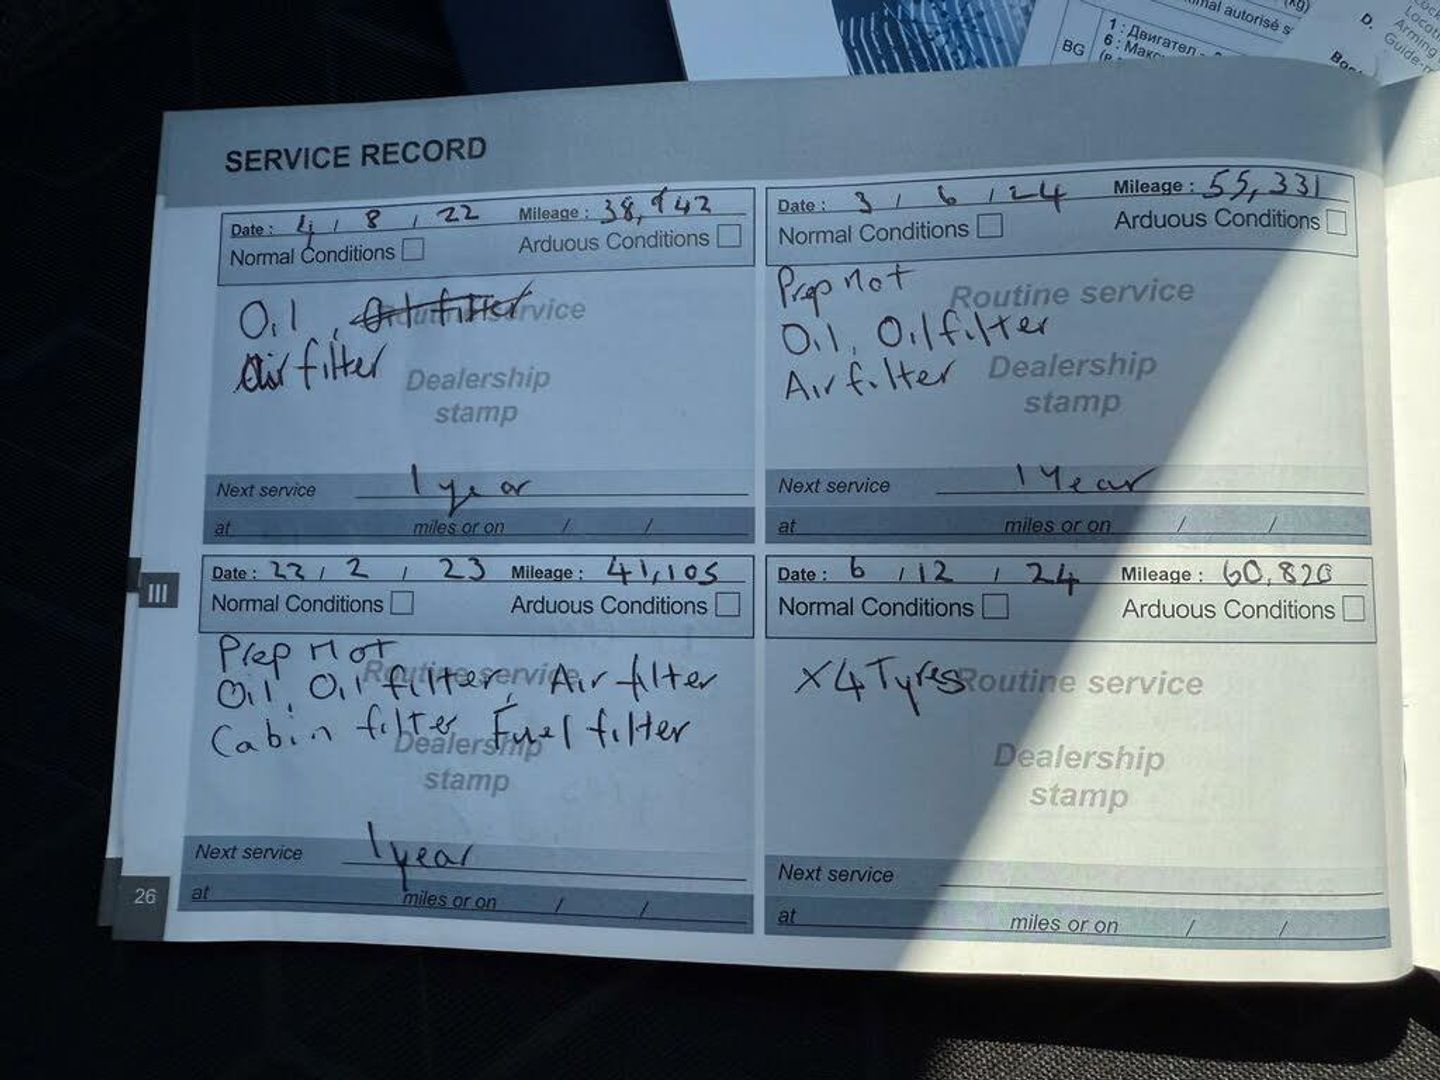 mal autorisé s
(kg)
BG
1 : Двигател -
6 : Макс
D.
Arming
Guide-
SERVICE RECORD
Date : 4 / 8 / 22 Mileage : 38,942
Normal Conditions Arduous Conditions
Routine service
Oil,
Air filter
Dealership
stamp
Next service 1 year
at miles or on / /
Date : 3 / 6 / 24 Mileage : 55,331
Normal Conditions Arduous Conditions
Prep Mot
Routine service
Oil, Oil filter
Air filter
Dealership
stamp
Next service 1 Year
at miles or on / /
Date : 22 / 2 / 23 Mileage : 41,105
Normal Conditions Arduous Conditions
Prep Mot
Routine service
Oil, Oil filter, Air filter
Cabin filter Fuel filter
Dealership
stamp
Next service 1 year
at miles or on / /
Date : 6 / 12 / 24 Mileage : 60,820
Normal Conditions Arduous Conditions
X4 Tyres
Routine service
Dealership
stamp
Next service
at miles or on / /
III
26